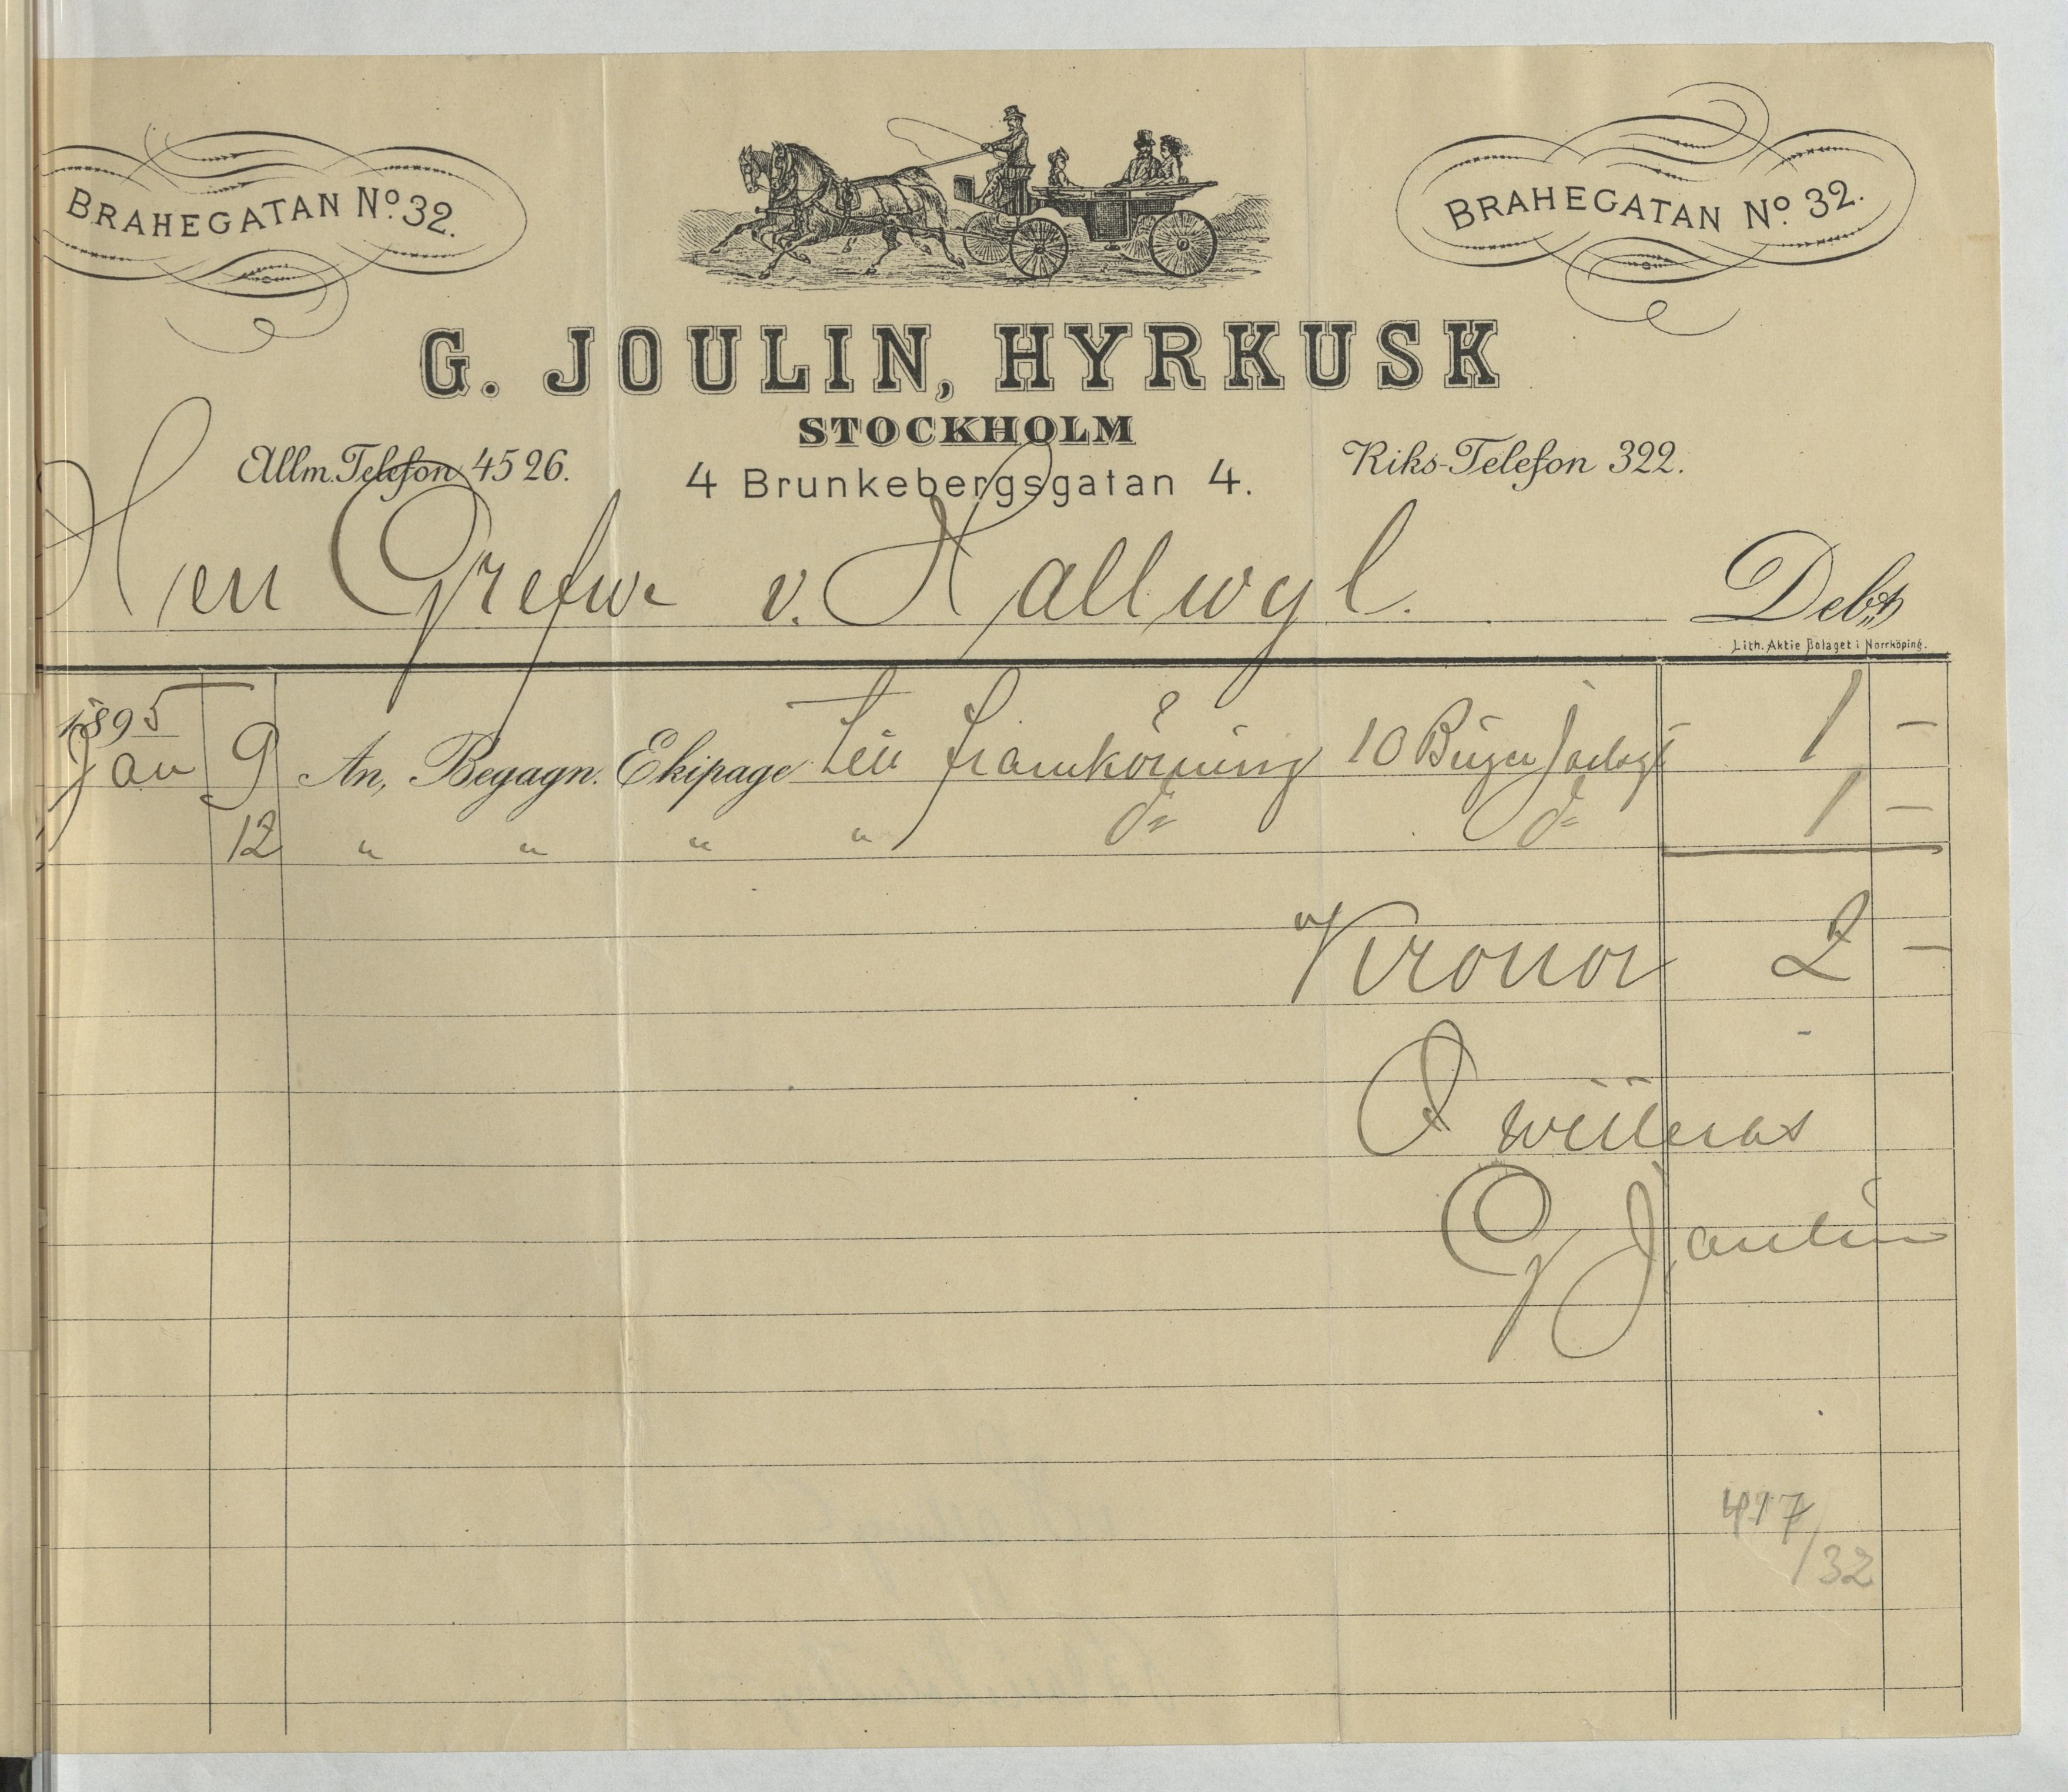 BRAHEGATAN No. 32.
BRAHEGATAN No. 32.
G. JOULIN, HYRKUSK
STOCKHOLM
Allm. Telefon 4526.
4 Brunkebergsgatan 4.
Riks-Telefon 322.
Herr Grefwe v. Hallwyl. Debet
Lith. Aktie Bolaget i Norrköping.
1895
Jan 9 An, Begagn. Ekipage till framkörning 10 1 —
12 " " " " do do 1 —
Kronor 2 —
Qwitteras
G Joulin
417/32